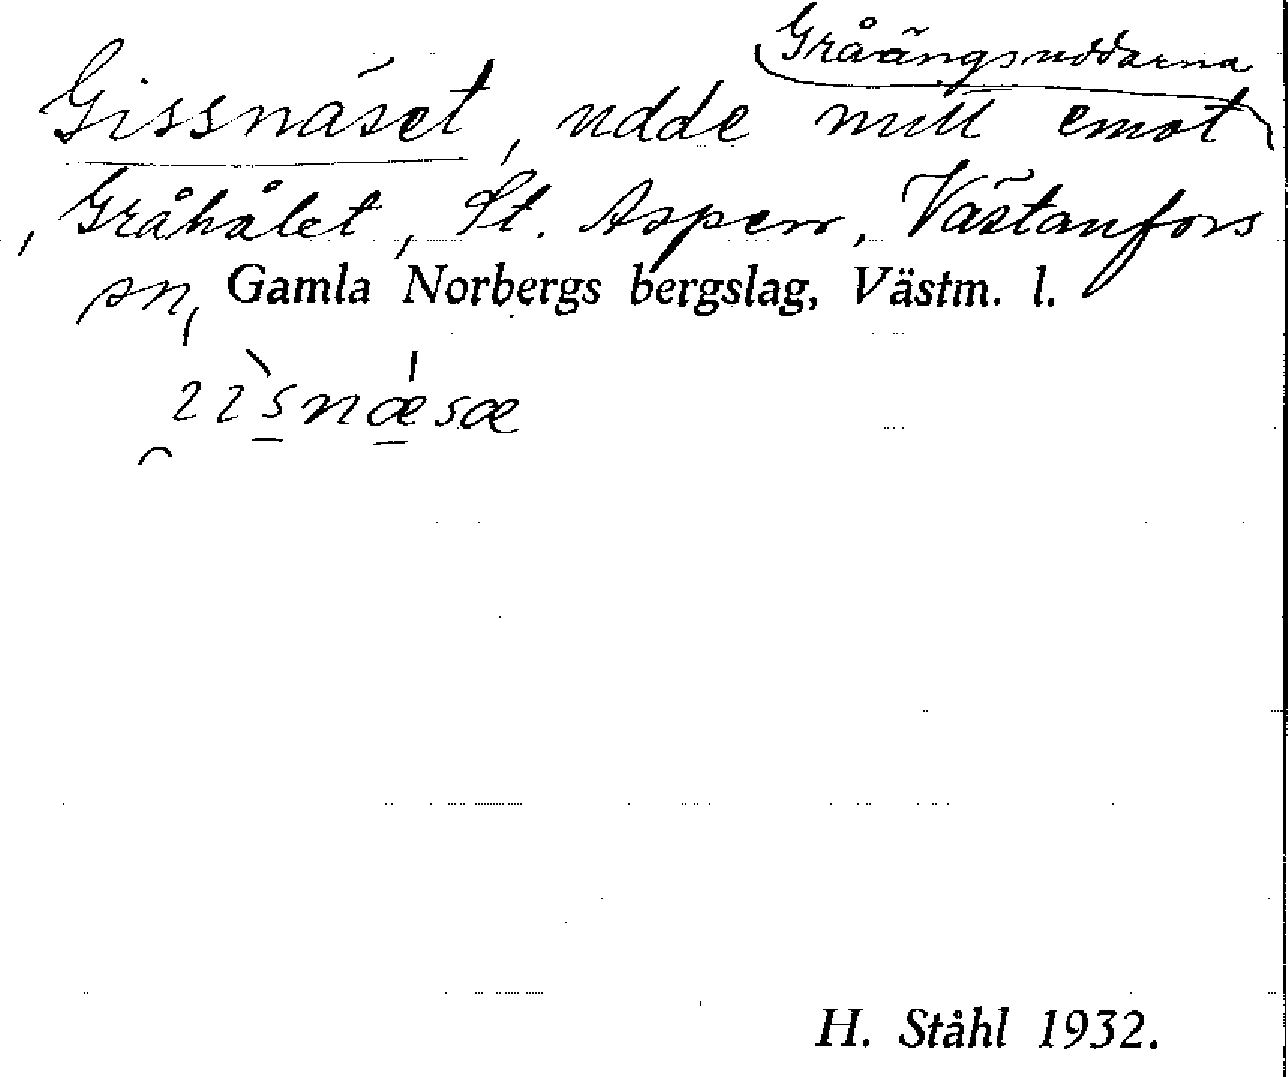 Gråängsuddarna
Gissnäset, udde mitt emot
, Gråhålet, St. Aspen, Västanfors
sn, Gamla Norbergs bergslag, Västm. l.
H. Ståhl 1932.